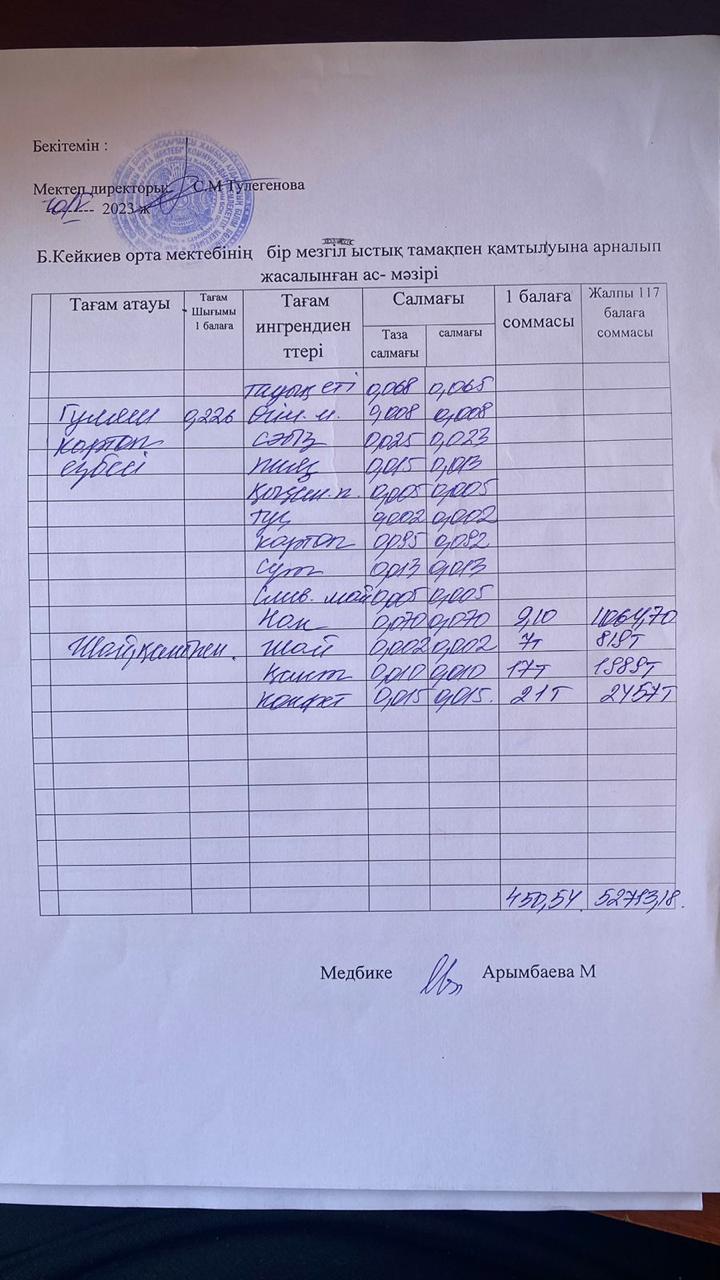 Бекітемін :
Мектеп директоры: С.М Тулегенова
2023 ж
Б.Кейкиев орта мектебінің бір мезгіл ыстық тамақпен қамтылуына арналып
жасалынған ас- мәзірі
Тағам атауы Тағам Шығымы 1 балаға Тағам ингрендиен ттері Салмағы 1 балаға соммасы Жалпы 117 балаға соммасы
Таза салмағы салмағы
тауық еті 0,068 0,065
Гуляш 0,226 Өсім. м. 0,008 0,008
картоп сәбіз 0,025 0,023
езбесі пияз 0,015 0,013
0,005 0,005
тұз 0,002 0,002
картоп 0,095 0,092
сүт 0,013 0,013
Слив. май 0,005 0,005
Нан 0,070 0,070 9,10 1064,70
Шай, кәмпит. шай 0,002 0,002 7т 819т
Қант 0,010 0,010 17т 1989т
конфет 0,015 0,015. 21т 2457т
450,54 52713,18.
Медбике Арымбаева М